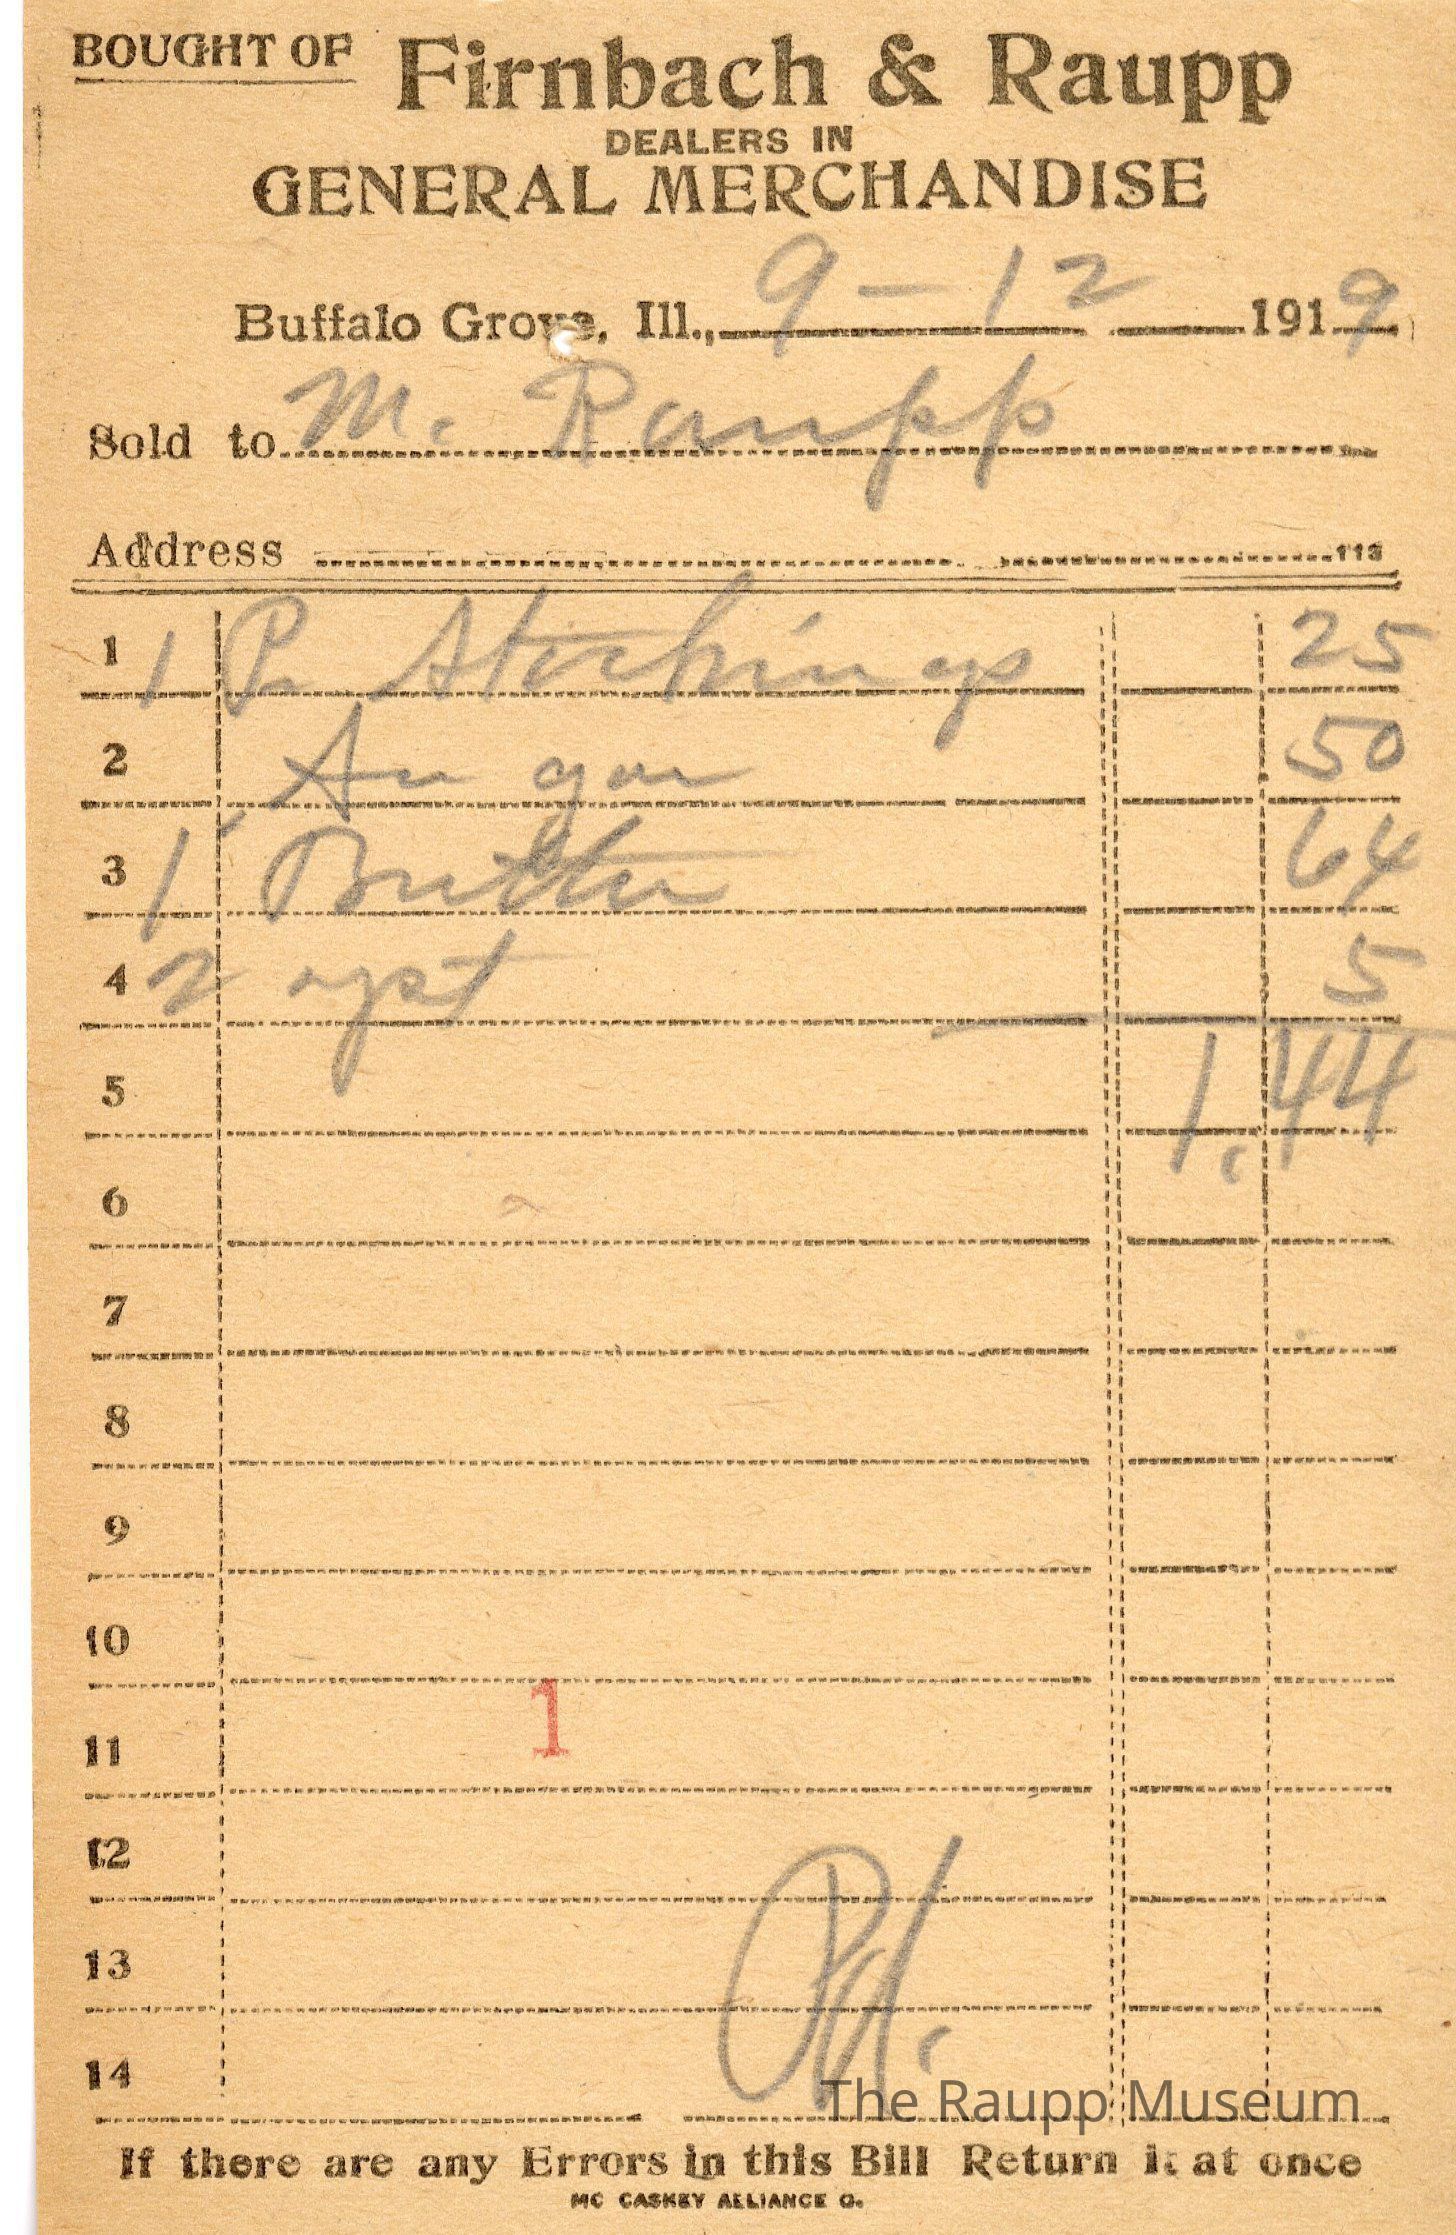 BOUGHT OF Firnbach & Raupp
DEALERS IN
GENERAL MERCHANDISE
Buffalo Grove, Ill., 9-12 1919
Sold to M. Raupp
Address 113
1 1 Pr Stockings 25
2 Sugar 50
3 1 Butter 64
4 2 yst 5
5 1.44
6
7
8
9
10
1
11
12
13
Pd.
14
The Raupp Museum
If there are any Errors in this Bill Return it at once
MC CASKEY ALLIANCE O.